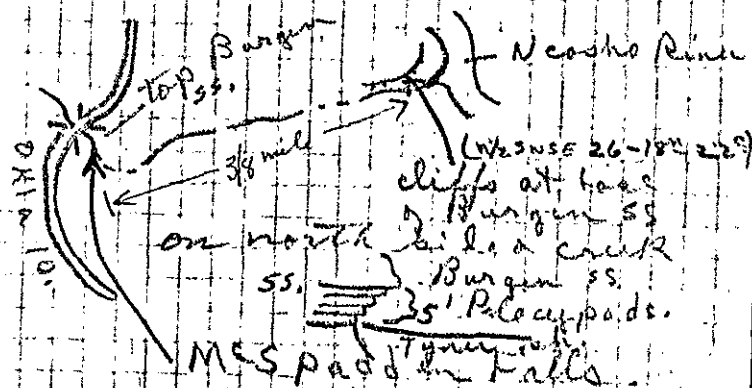 Burgen
top ss.
Neosho River
3/8 mile
OKLA 10.
(W/2 SW SE 26-18N-22E)
cliffs at base
of Burgen ss
on north side of creek
Burgen ss.
ss.
35' Pelecypods.
Tyner sh.
McSpadden Falls